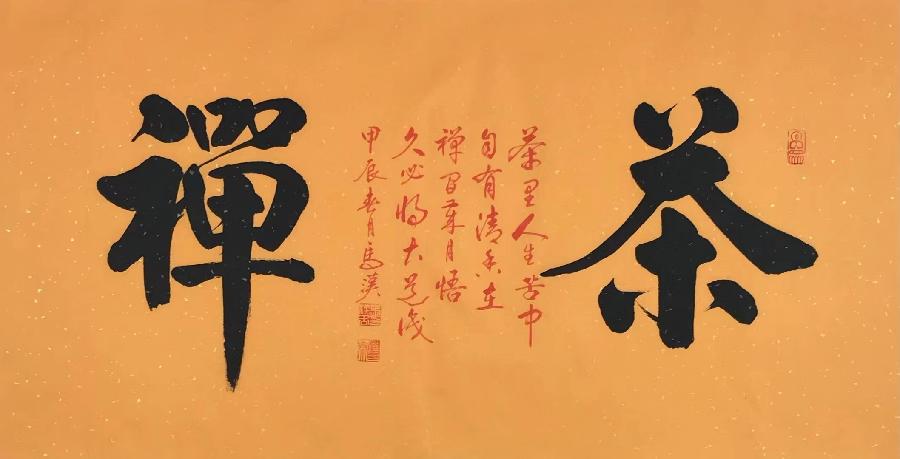 茶
茶里人生苦中
自有清香在
禅月悟
久必大道
甲辰春月馬漢
禪